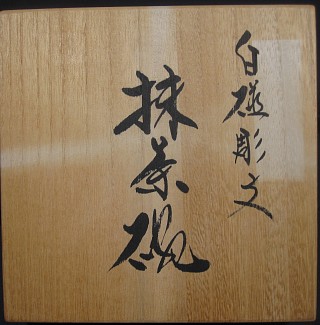 白磁彫文
抹茶碗